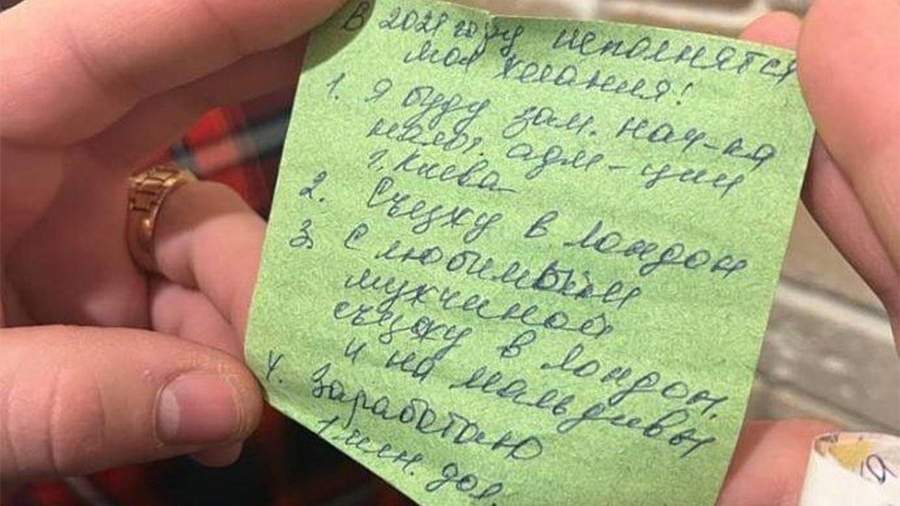 В 2021 году исполнятся
мои желания!
1. Я буду зам. нач-ка
налог. адм-ции
г. Киева
2. Съезжу в Лондон
3. С любимым
мужчиной
съезжу в Лондон
и на Мальдивы
4. Заработаю
1 млн. дол.
Я